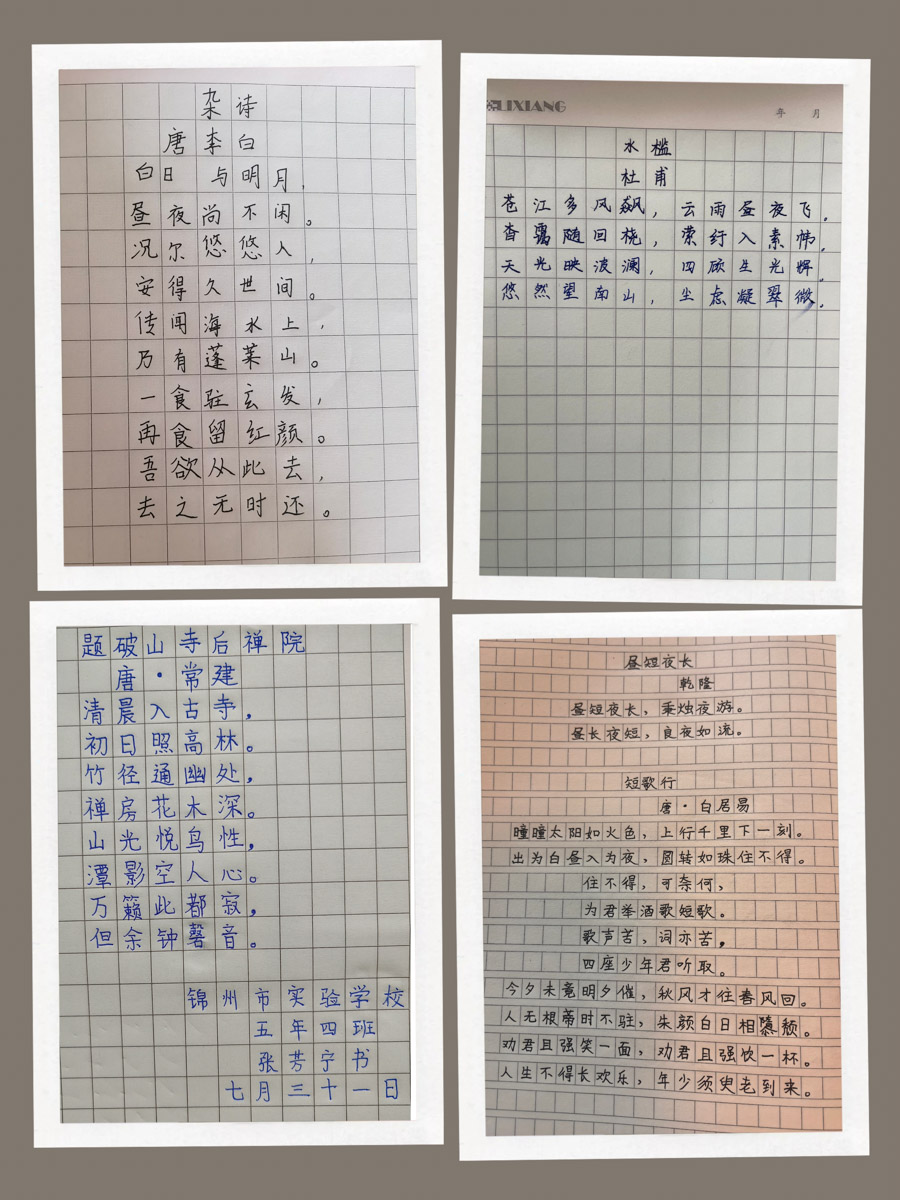 杂诗
唐 李白
白日 与明月,
昼夜尚不闲。
况尔悠悠人,
安得久世间。
传闻海水上,
乃有蓬莱山。
一食驻玄发,
再食留红颜。
吾欲从此去,
去之无时还。
LIXIANG
年 月
水槛
杜甫
苍江多风飙,云雨昼夜飞.
杳霭随回桡,萦纡入素帏.
天光映波澜,四顾生光辉.
悠然望南山,尘虑凝翠微.
题破山寺后禅院
唐·常建
清晨入古寺,
初日照高林。
竹径通幽处,
禅房花木深。
山光悦鸟性,
潭影空人心。
万籁此都寂,
但余钟磬音。
锦州市实验学校
五年四班
张芳宁书
七月三十一日
昼短夜长
乾隆
昼短夜长,秉烛夜游。
昼长夜短,良夜如流。
短歌行
唐·白居易
曈曈太阳如火色,上行千里下一刻。
出为白昼入为夜,圆转如珠住不得。
住不得,可奈何,
为君举酒歌短歌。
歌声苦,词亦苦,
四座少年君听取。
今夕未竟明夕催,秋风才往春风回。
人无根蒂时不驻,朱颜白日相隳颓。
劝君且强笑一面,劝君且强饮一杯。
人生不得长欢乐,年少须臾老到来。